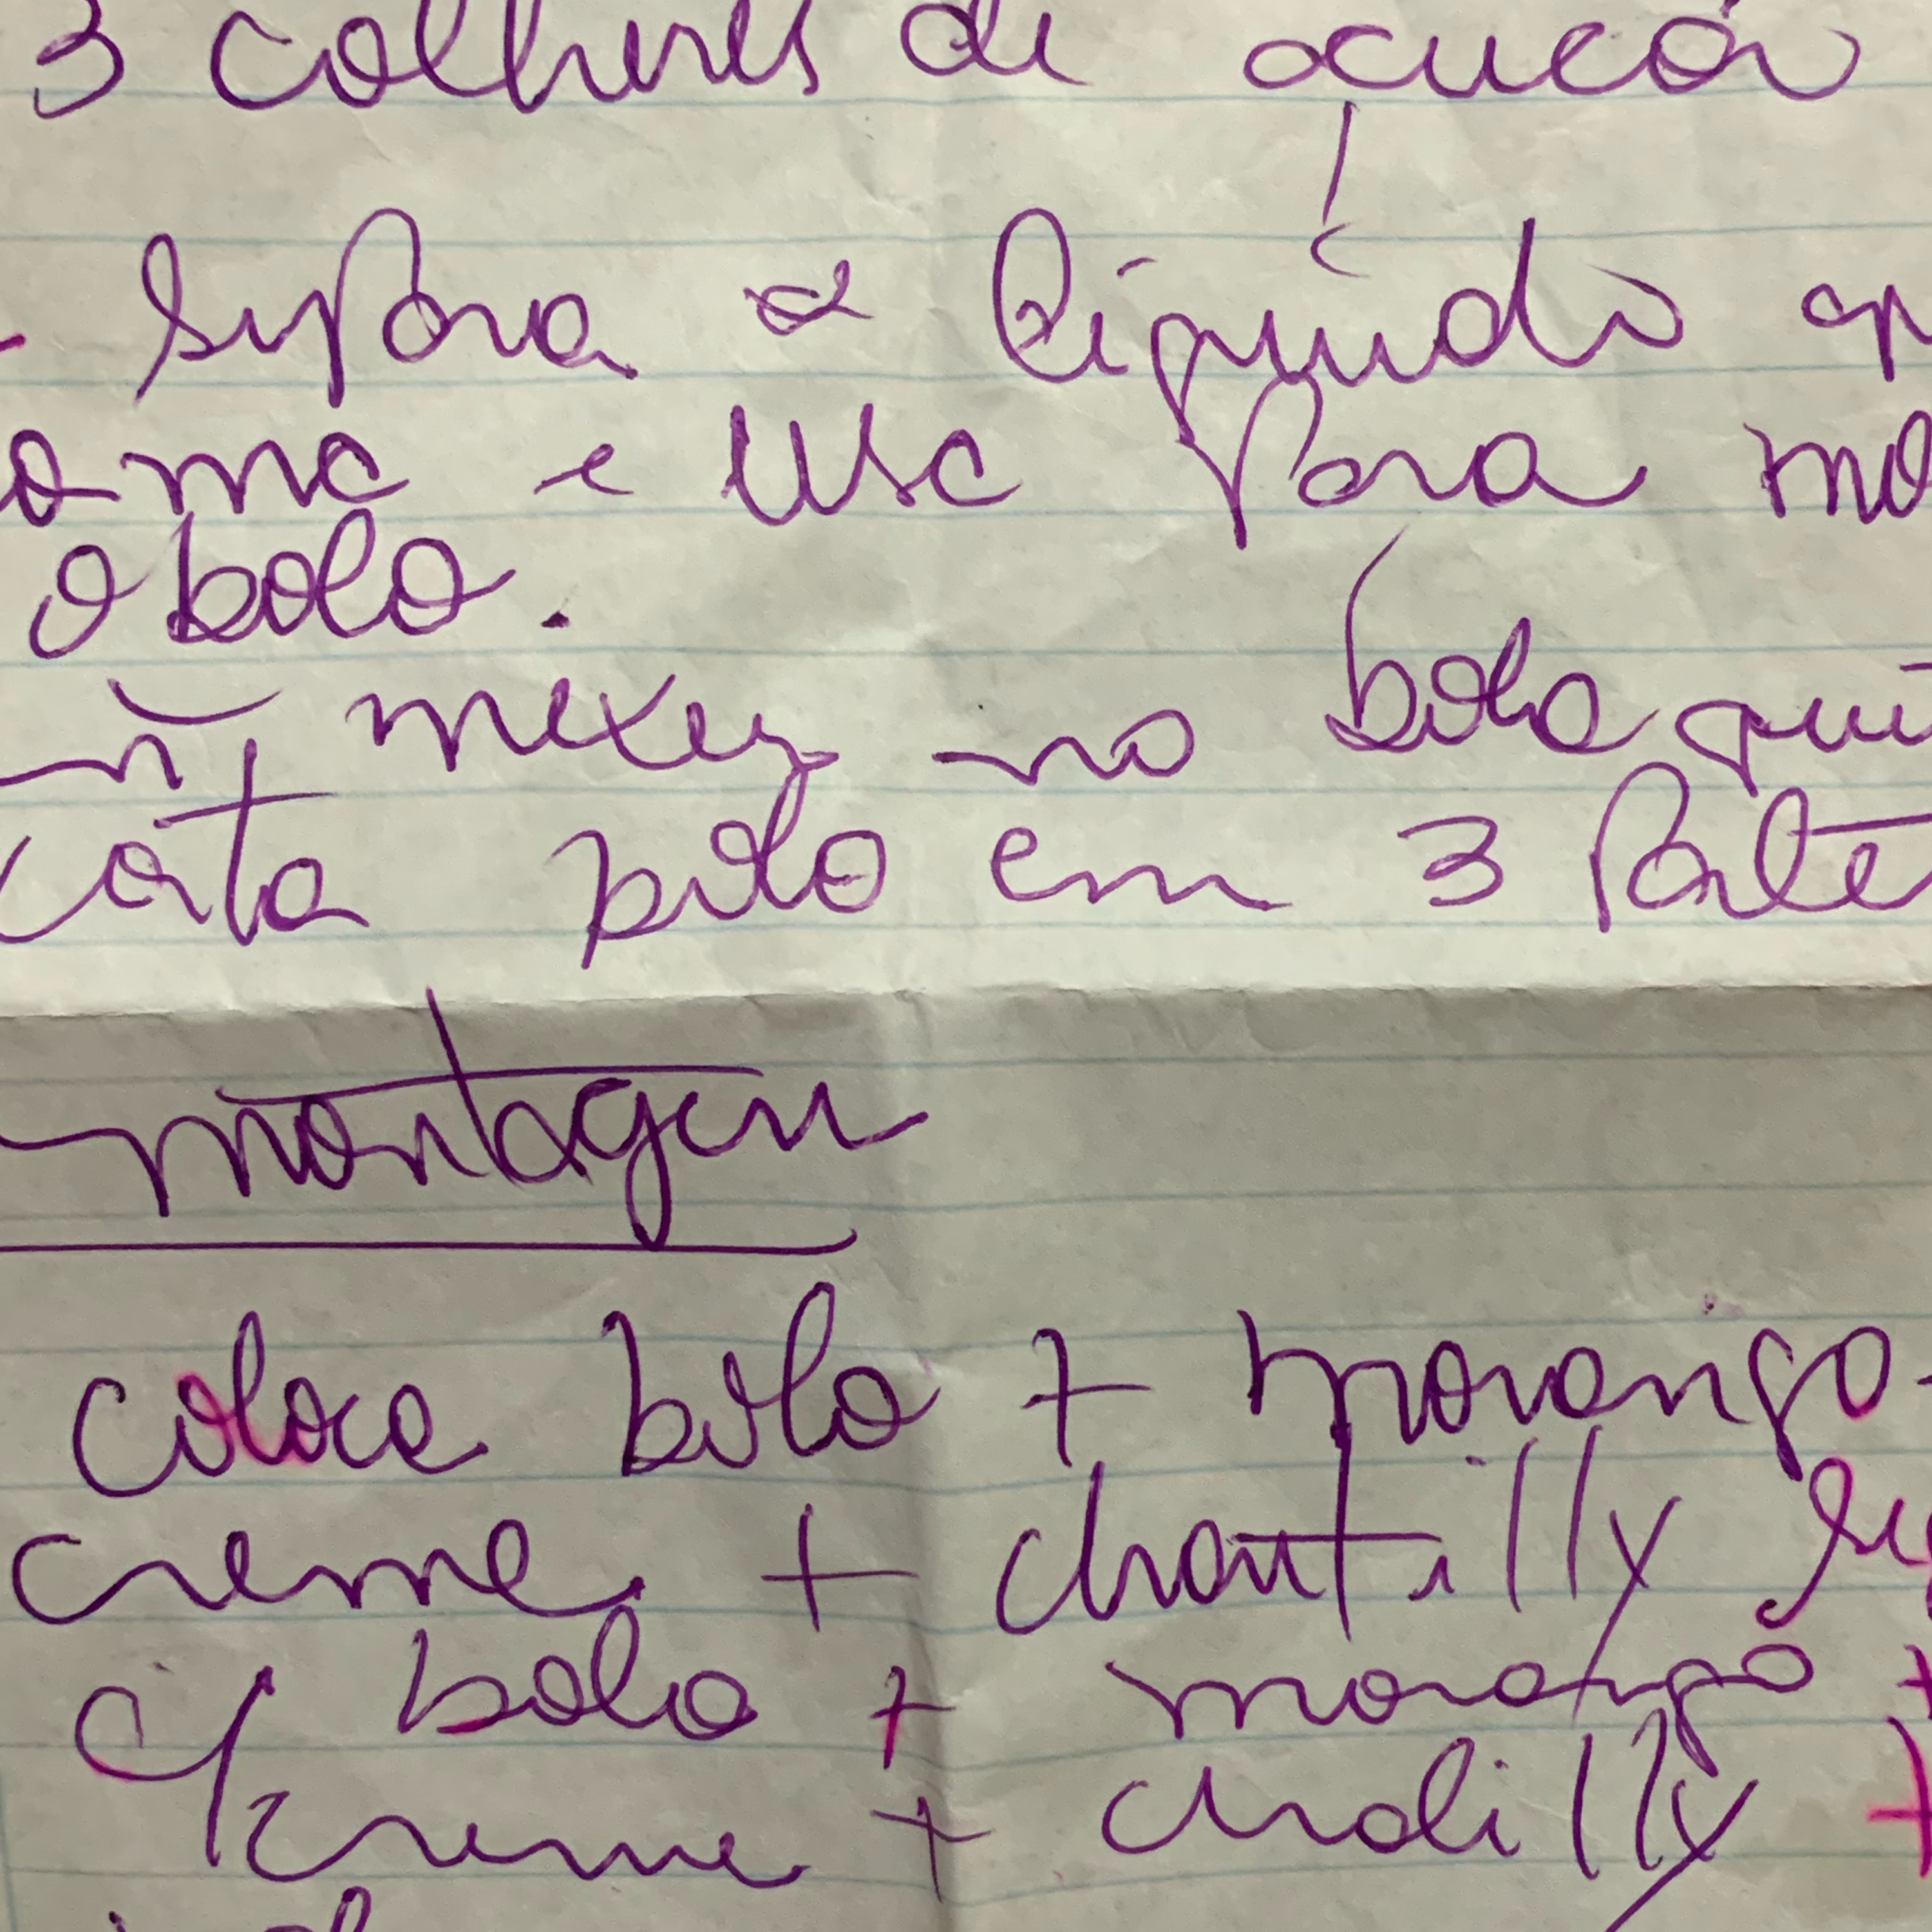 3 colheres de açucar
separa o liquido q
oma e usa para mo
o bolo.
ñ mexer no bolo qui
corta bolo em 3 Parte
montagem
coloca bolo + morango
creme + chantilly se
c/ bolo + morango +
creme +